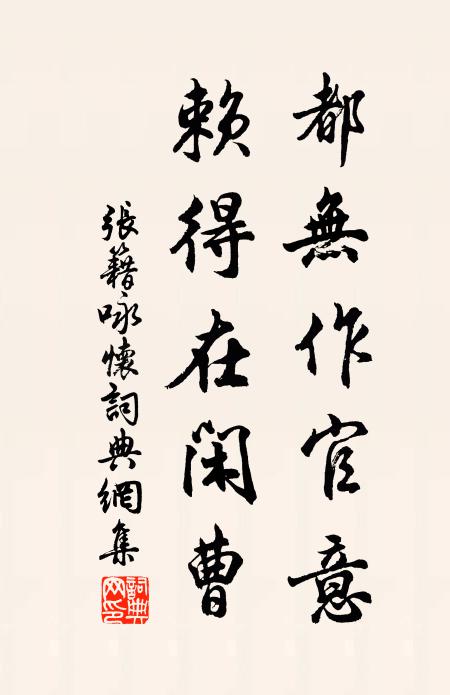 都無作官意
賴得在閑曹
張籍咏懷詞典網集
詞典网印